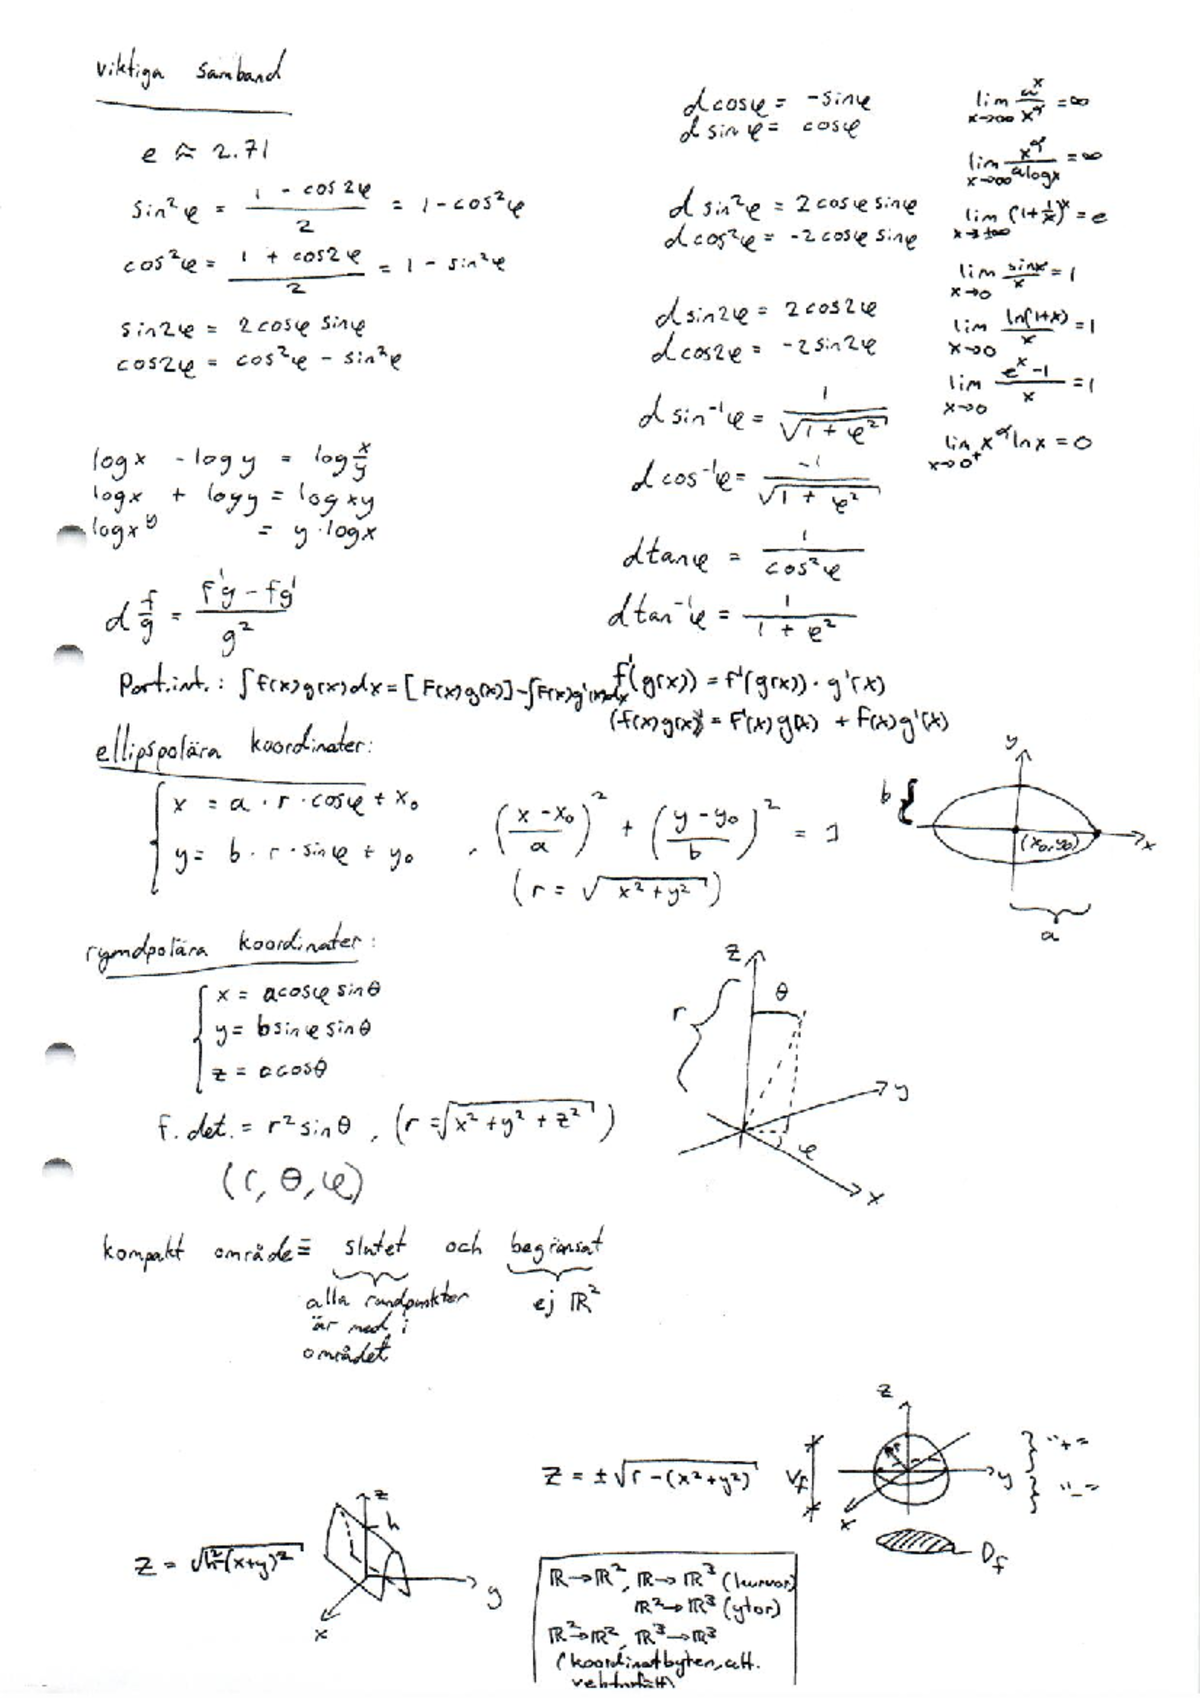 viktiga samband
e ≈ 2.71
sin²φ = (1 - cos2φ)/2 = 1 - cos²φ
cos²φ = (1 + cos2φ)/2 = 1 - sin²φ
sin2φ = 2cosφ sinφ
cos2φ = cos²φ - sin²φ
logx - logy = log x/y
logx + logy = logxy
logx^y = y·logx
d f/g = (f'g - fg')/g²
dcosφ = -sinφ
dsinφ = cosφ
dsin²φ = 2cosφsinφ
dcos²φ = -2cosφsinφ
dsin2φ = 2cos2φ
dcos2φ = -2sin2φ
dsin⁻¹φ = 1/√(1 + φ²)
dcos⁻¹φ = -1/√(1 + φ²)
dtanφ = 1/cos²φ
dtan⁻¹φ = 1/(1 + φ²)
lim x→∞ a^x/x^α = ∞
lim x→∞ x^α/alogx = ∞
lim x→±∞ (1+1/x)^x = e
lim x→0 sinx/x = 1
lim x→0 ln(1+x)/x = 1
lim x→0 (e^x - 1)/x = 1
lim x→0⁺ x^α lnx = 0
Part.int.: ∫f(x)g(x)dx = [F(x)g(x)] - ∫F(x)g'(x)dx
f'(g(x)) = f'(g(x))·g'(x)
(f(x)g(x))' = f'(x)g(x) + f(x)g'(x)
ellipspolära koordinater:
x = a·r·cosφ + x₀
y = b·r·sinφ + y₀ , ((x - x₀)/a)² + ((y - y₀)/b)² = 1
(r = √(x² + y²))
y
b
(x₀,y₀)
x
a
rymdpolära koordinater:
x = acosφsinθ
y = bsinφsinθ
z = acosθ
f.det. = r²sinθ , (r = √(x² + y² + z²))
(r, θ, φ)
z
θ
r
y
φ
x
kompakt område = slutet och begränsat
alla randpunkter
är med i
området
ej ℝ²
z = ±√(r - (x² + y²))
V_f
z
r
y
x
"+"
"-"
D_f
z = √(h² - (x+y)²)
z
h
y
x
ℝ→ℝ², ℝ→ℝ³ (kurvor)
ℝ²→ℝ³ (ytor)
ℝ²→ℝ², ℝ³→ℝ³
(koordinatbyten, alt.
vektorfält)